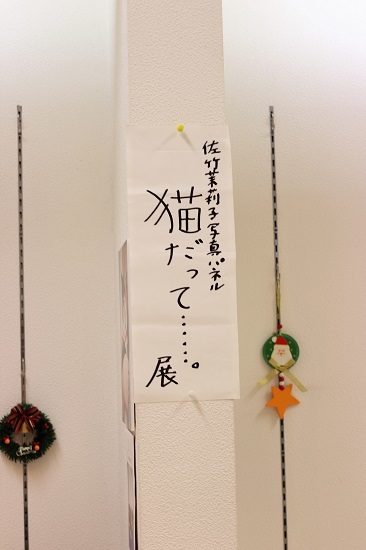 佐竹茉莉子写真パネル
猫だって……。
展